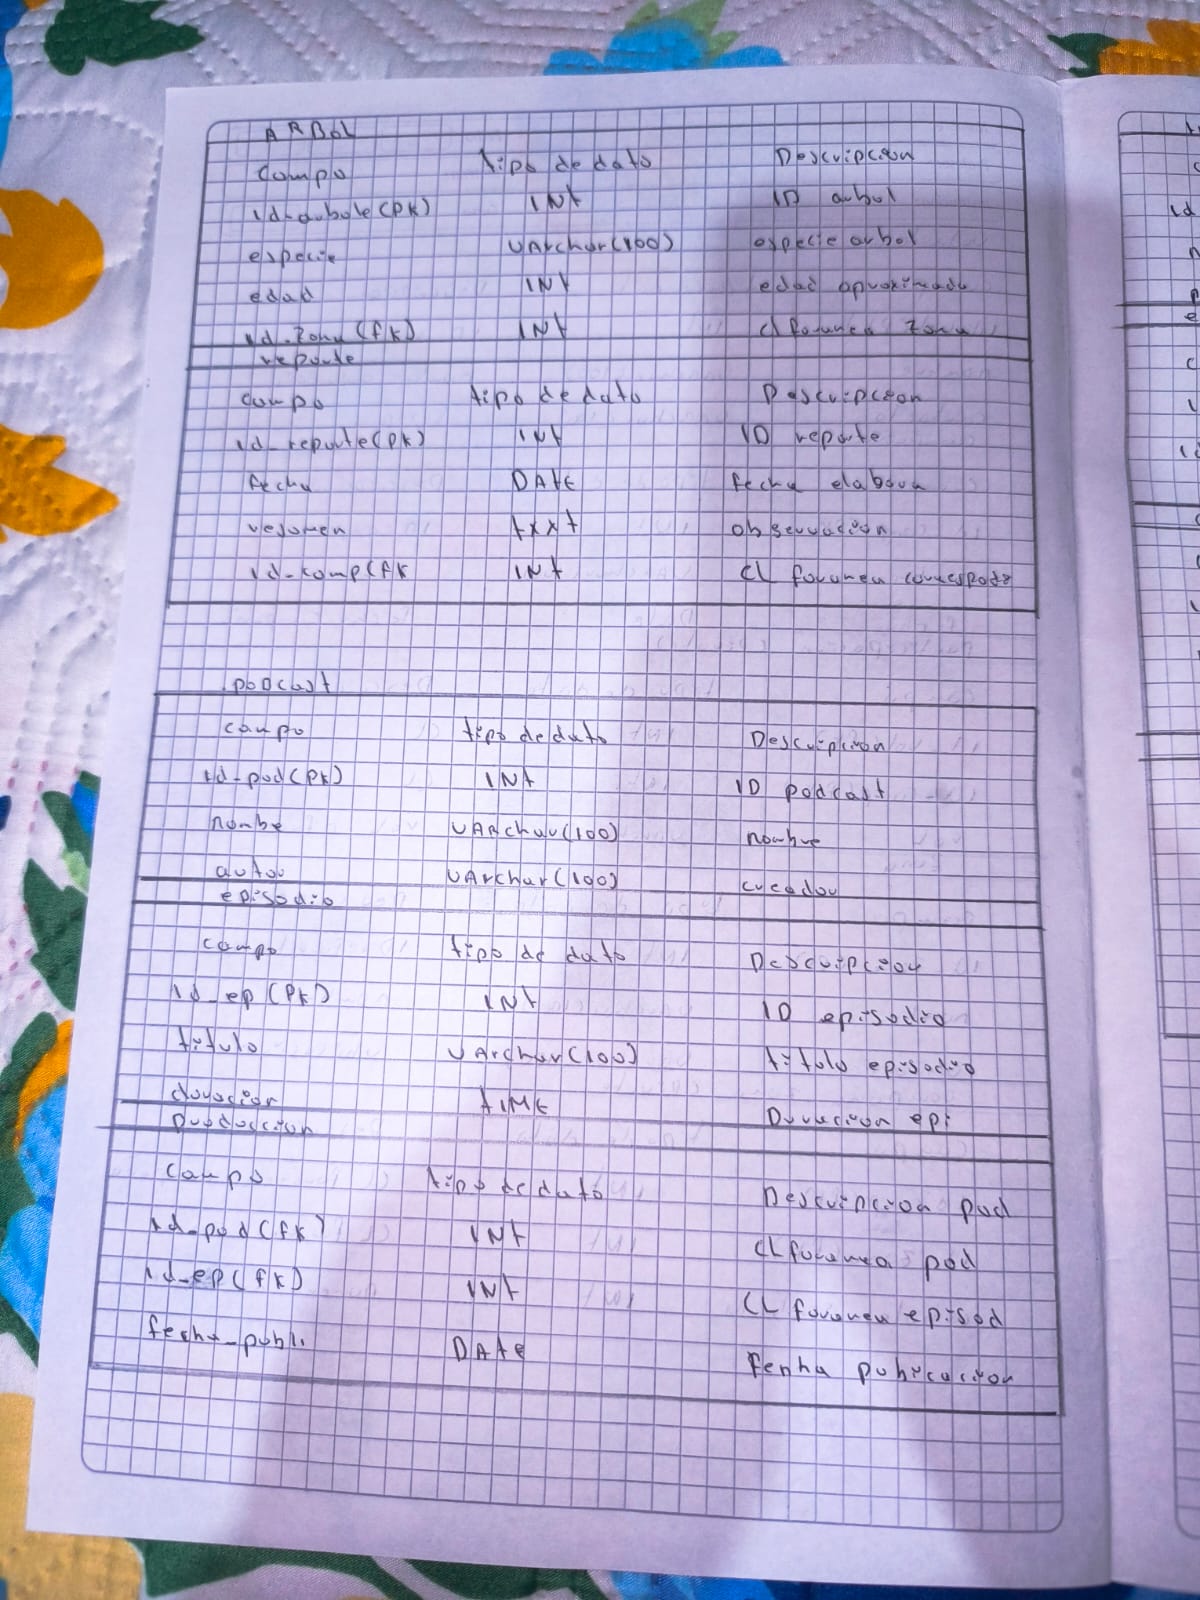 ARBOL
Campo tipo de dato Descripcion
id-arbole(PK) INt ID arbol
especie VArchar(100) especie arbol
edad INt edad aproximada
id-zona(fk) INt cl foranea zona
reporte
campo tipo de dato Descripcion
id_reporte(PK) INt ID reporte
fecha DAtE fecha elabora
resumen txxt observacion
id-comp(fk INt CL foranea correspode
podcast
campo tipo de dato Descripcion
id-pod(PK) INt ID podcast
nombe VARchar(100) nombre
autor VArchar(100) creador
episodio
campo tipo de dato Descripcion
id_ep(PK) INt ID episodio
titulo VArchar(100) titulo episodio
duracion tIME Duracion epi
Produccion
campo tipo de dato Descripcion pod
id_pod(fk) INt CL foranea pod
id_ep(fk) INt CL foranea episod
fecha_publi DAtE fenha publicacion